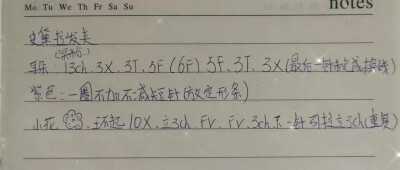 Mo Tu We Th Fr Sa Su
notes
史黛拉发夹
耳朵 13ch, 3X, 3T, 5F (6F) 5F, 3T, 3X (最后一针完成换线)
紫色:一圈不加不减短针(放定形条)
小花 环起10X, 立3ch, FV, FV, 3ch, 下一针引拔立3ch(重复)